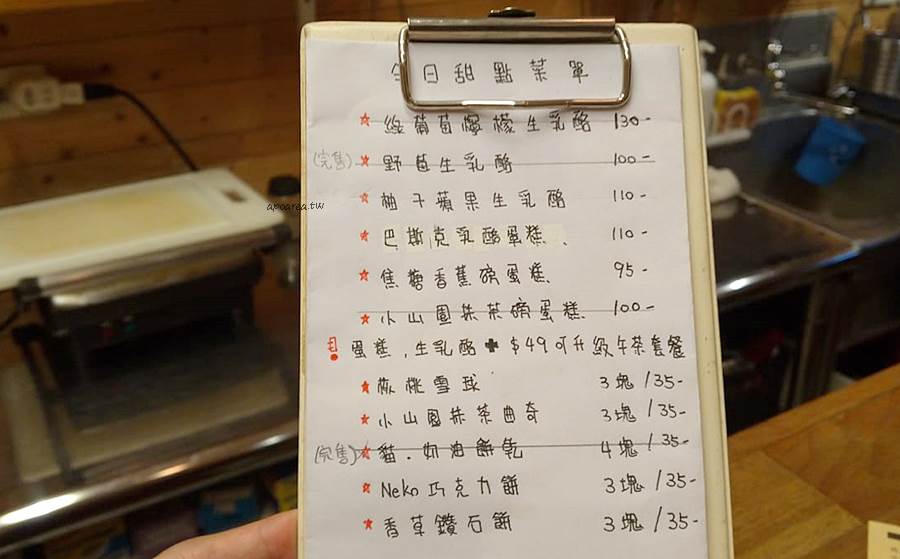 今日甜點菜單
☆綠葡萄檸檬生乳酪 130-
(完售)☆野莓生乳酪 100-
☆柚子蘋果生乳酪 110-
☆巴斯克乳酪蛋糕、 110-
☆焦糖香蕉磅蛋糕 95-
☆小山園抹茶磅蛋糕 100-
蛋糕.生乳酪+$49可升級午茶套餐
★核桃雪球 3塊/35-
★小山園抹茶曲奇 3塊/35-
(完售)★貓.奶油餅乾 4塊/35-
★Neko巧克力餅 3塊/35-
★香草鑽石餅 3塊/35-
apoarea.tw